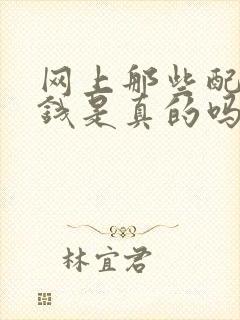 网上那些配
钱是真的吗
林宜君